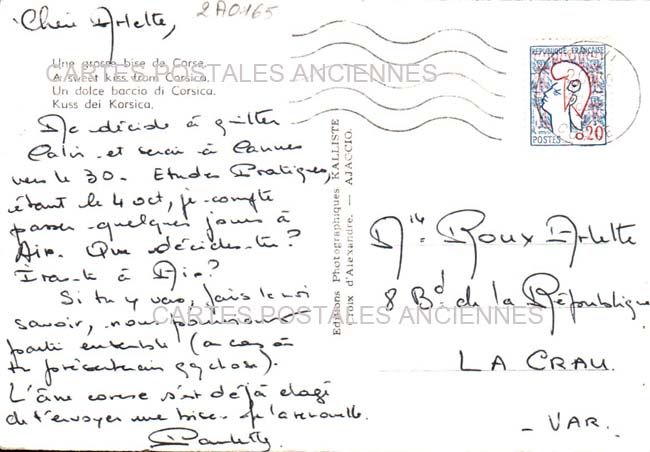 Chère Arlette,
2A0165
Une grosse bise de Corse.
A sweet kiss from Corsica.
Un dolce baccio di Corsica.
Kuss dei Korsica.
CARTES POSTALES ANCIENNES
Me décide à quitter
Calvi et serai à Cannes
vers le 30. Etudes Pratiques,
étant le 4 oct, je compte
passer quelques jours à
Aix. Que décides-tu?
Iras-tu à Aix?
Si tu y vas, fais le moi
savoir, nous pourrions
partir ensemble (au cas où
tu
L'âne corse s'est déjà chargé
de t'envoyer une bise. Je la renouvelle.
Paulette.
Editions Photographiques KALLISTE
Croix d'Alexandre. — AJACCIO.
REPUBLIQUE FRANÇAISE
POSTES
0.20
Mlle Roux Arlette
8 Bd de la République
CARTES POSTALES ANCIENNES
LA CRAU.
- VAR.